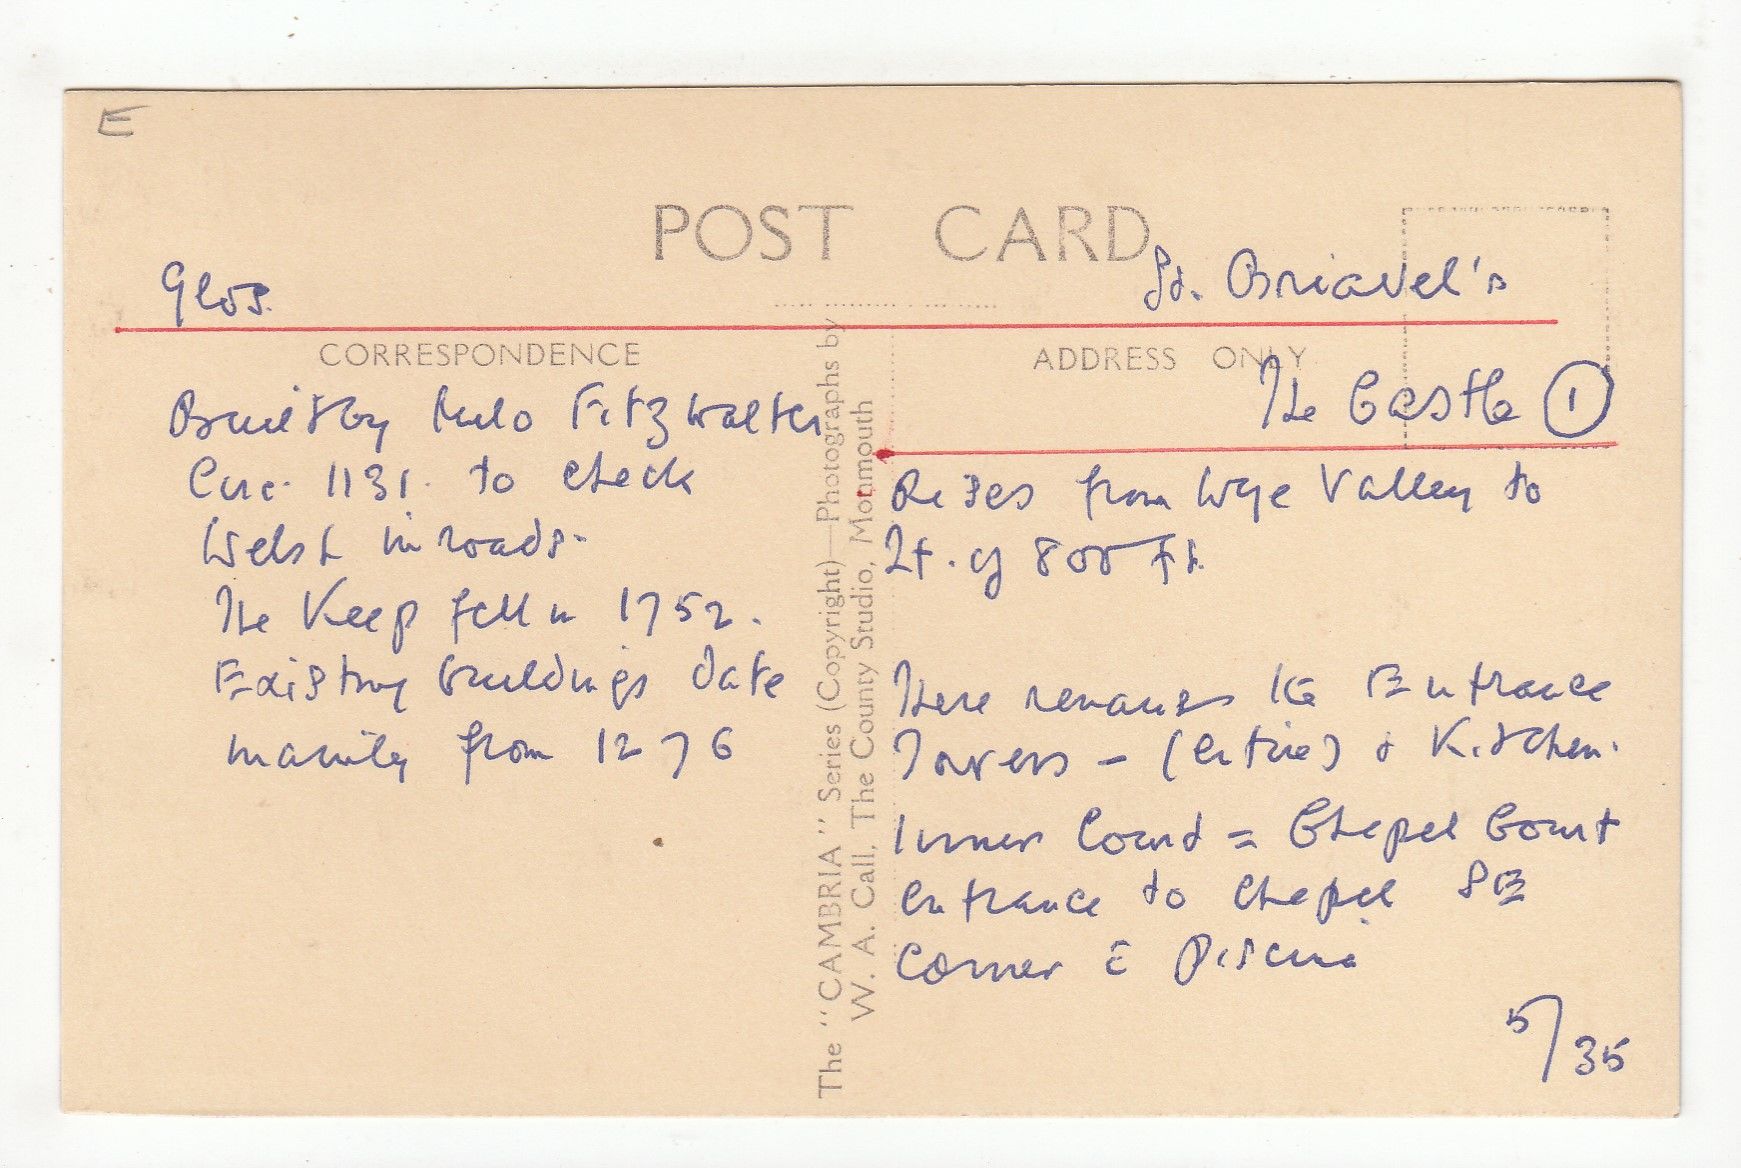 E
POST CARD
Glos.
St. Briavel's
CORRESPONDENCE
ADDRESS ONLY
The Castle 1
Built by Milo FitzWalter
Circ. 1131. to check
Welsh inroads.
The Keep fell in 1752.
Existing buildings date
mainly from 1276
The "CAMBRIA" Series (Copyright)—Photographs by
W. A. Call, The County Studio, Monmouth
Rises from Wye Valley to
Ht. of 800 ft.
There remains the Entrance
Towers – (entire) & Kitchen.
Inner Court = Chapel Court
entrance to Chapel SE
Corner c̄ Piscina
5/35